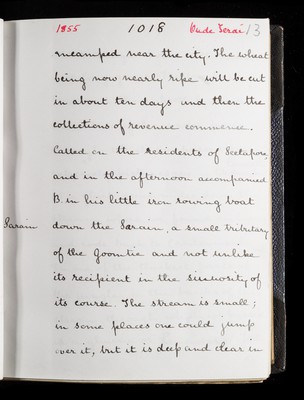 1855 1018 Oude Terai 13
encamped near the city. The wheat
being now nearly ripe will be cut
in about ten days and then the
collections of revenue commence.
Called on the residents of Seetapore,
and in the afternoon accompanied
B. in his little iron rowing boat
Sarain down the Sarain, a small tributary
of the Goomtie and not unlike
its recipient in the sinuosity of
its course. The stream is small;
in some places one could jump
over it, but it is deep and clear in